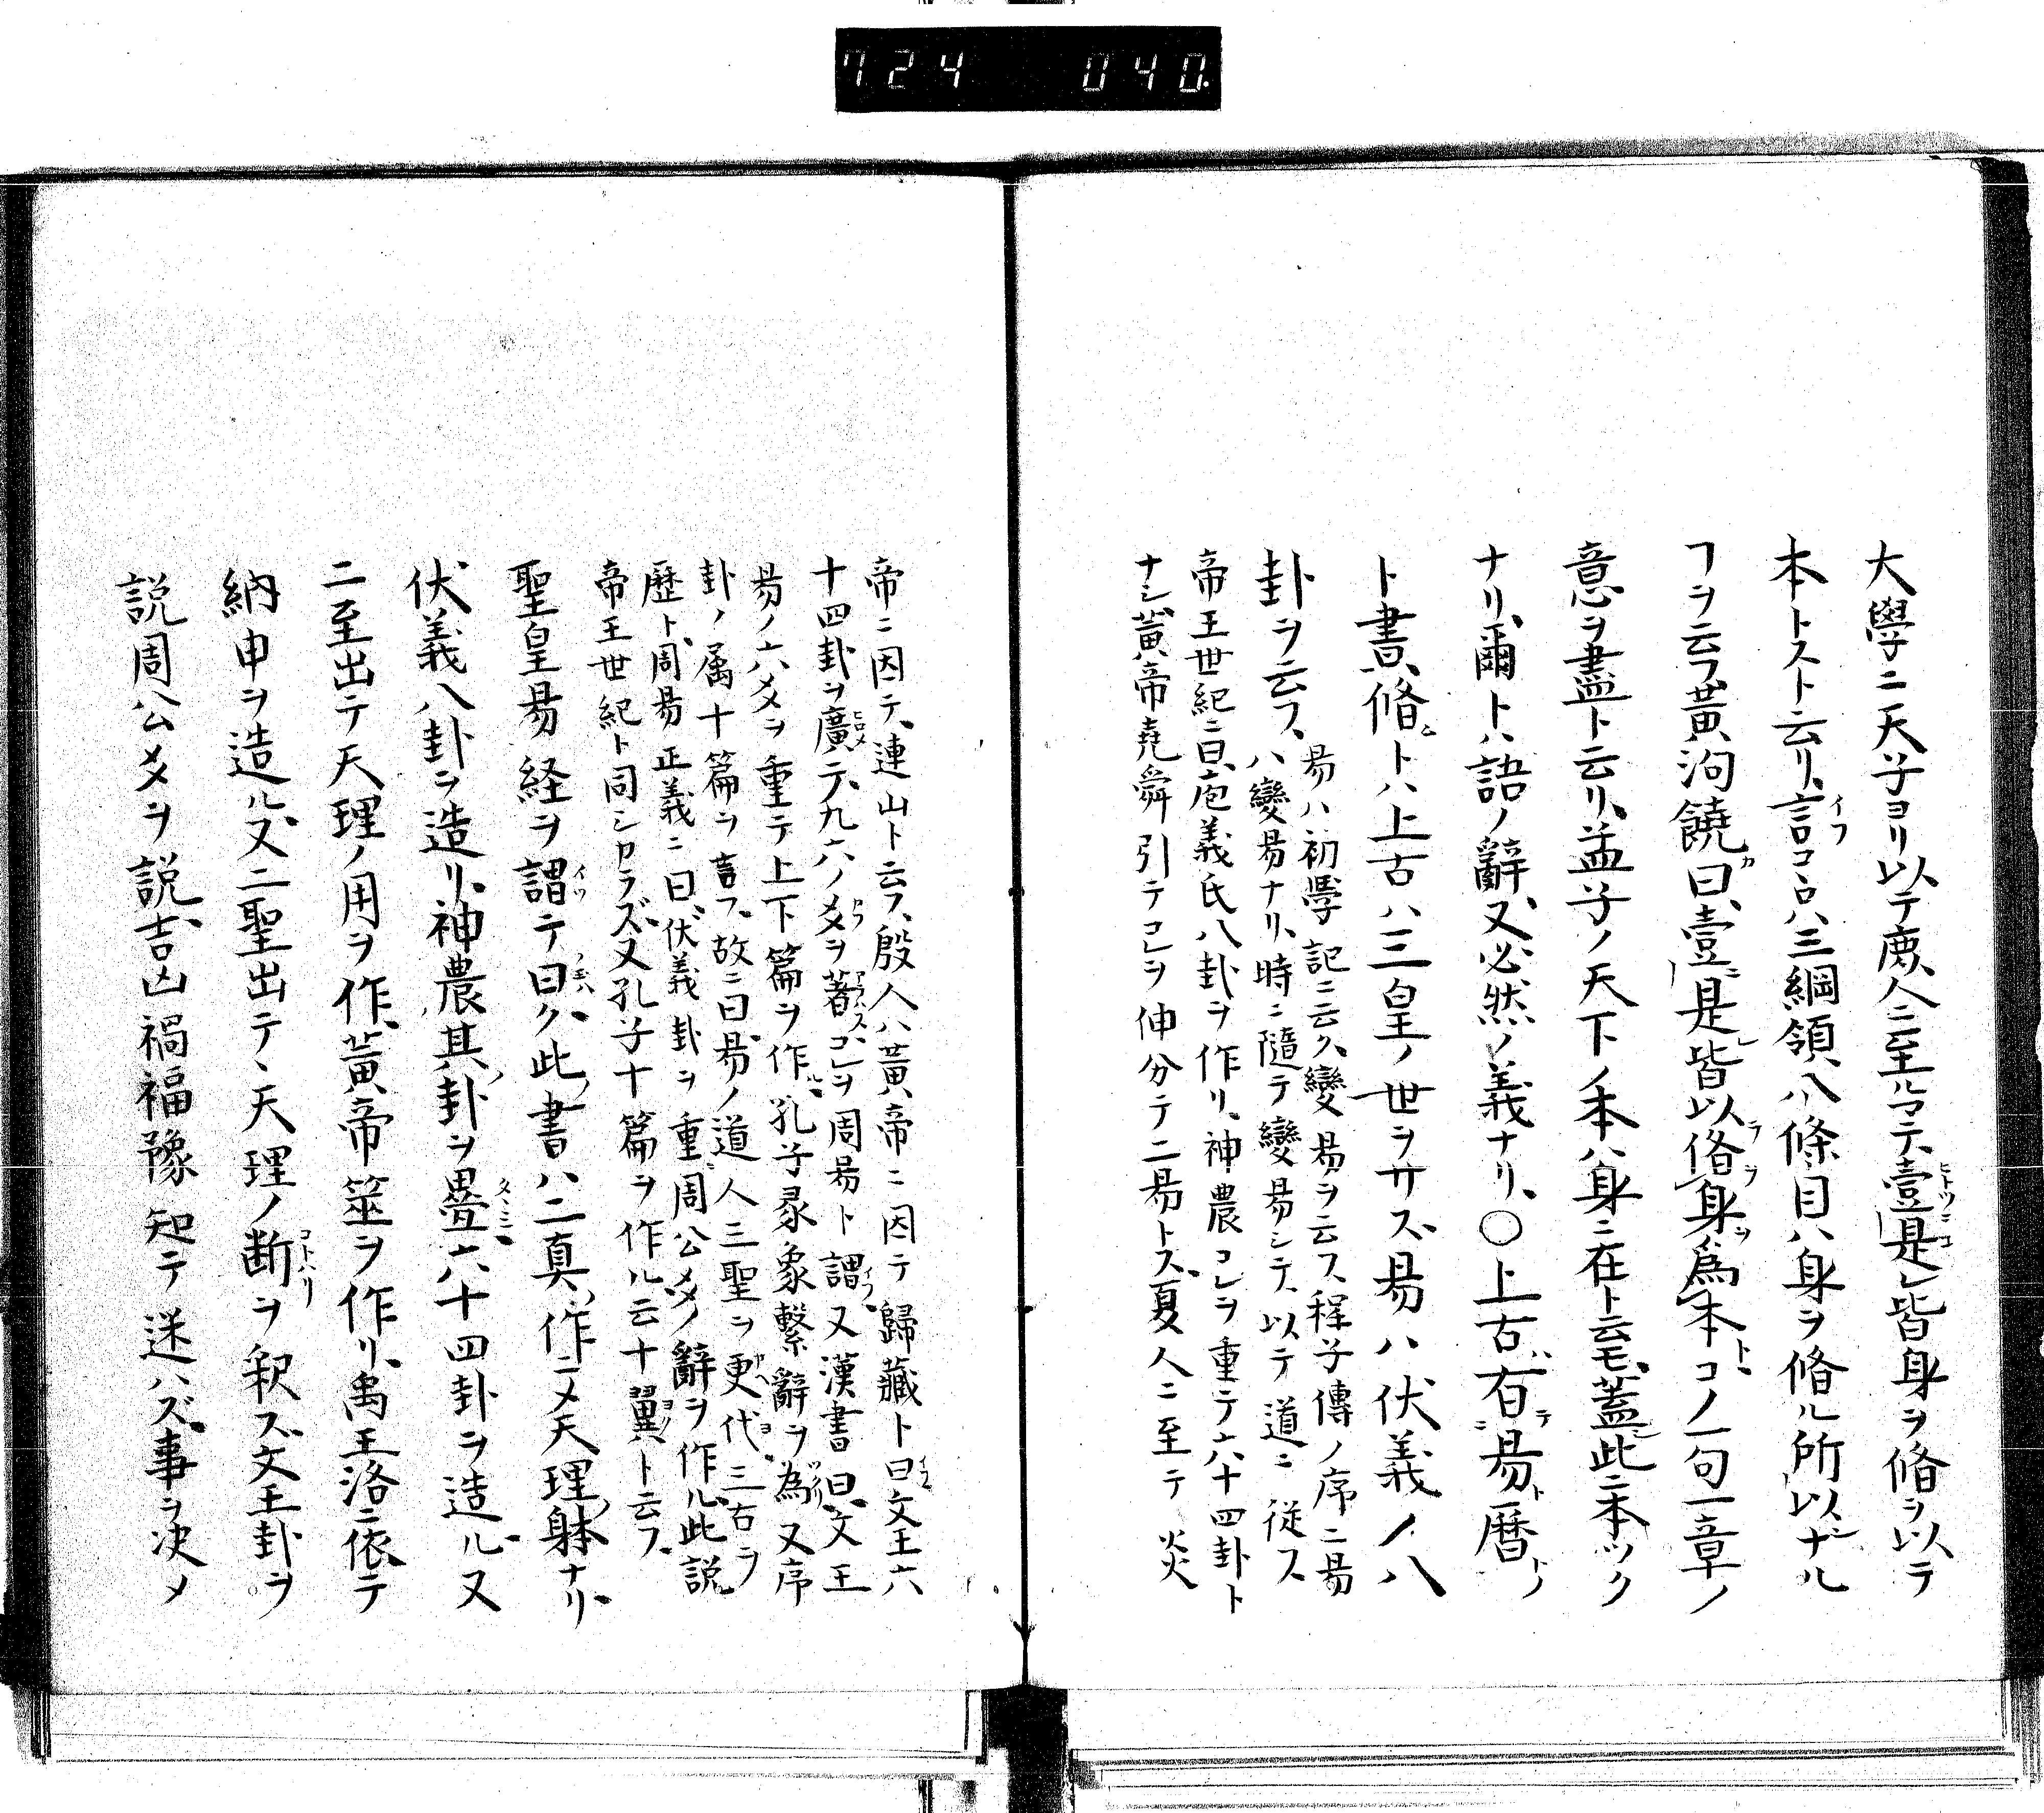 724 040.
大學ニ天子ヨリ以テ庶人ニ至ルマテ壹是レ皆身ヲ脩ヲ以テ
本トスト云リ、言コヽロハ三綱領八條目ハ身ヲ脩ル所以ナル
ヿヲ云フ、黄洵饒曰、壹是皆以脩身為本コノ一句一章ノ
意ヲ盡ト云リ、孟子ノ天下ノ本ハ身ニ在ト云モ蓋此ニ本ツク
ナリ、爾トハ語ノ辭、又必然ノ義ナリ、〇上古有易暦
ト書脩トハ上古ハ三皇ノ世ヲサス、易ハ伏義ノ八
卦ヲ云フ、易ハ初學記ニ云ク、變易ヲ云ス、程子傳ノ序ニ易
ハ變易ナリ、時ニ隨テ變易シテ、以テ道ニ従ス
帝王世紀ニ曰、庖義氏八卦ヲ作リ、神農コレヲ重テ六十四卦ト
ナシ、黄帝堯舜引テコレヲ伸分テ二易トス、夏人ニ至テ炎
帝ニ因テ、連山ト云フ、殷人ハ黄帝ニ因テ歸藏ト曰、文王六
十四卦ヲ廣テ、九六ノ爻ヲ著、コレヲ周易ト謂、又漢書曰、文王
易ノ六爻ヲ重テ上下篇ヲ作、孔子彖象繋辭ヲ為、又序
卦ノ属十篇ヲ言フ、故ニ曰、易ノ道人三聖ヲ更代三古ヲ
歴ト、周易正義ニ曰、伏義卦ヲ重、周公爻ノ辭ヲ作ル、此説
帝王世紀ト同シカラズ、又孔子十篇ヲ作ル云十翼ト云フ、
聖皇易経ヲ謂テ曰ク、此書ハ二真作ニメ天理躰ナリ、
伏義八卦ヲ造リ、神農其卦ヲ疊六十四卦ヲ造ル、又
二至出テ天理ノ用ヲ作、黄帝筮ヲ作リ、禹王洛ニ依テ
納甲ヲ造ル、又二聖出テヽ天理ノ断ヲ釈ズ、文王卦ヲ
説周公爻ヲ説、吉凶禍福豫知テ迷ハズ、事ヲ决メ